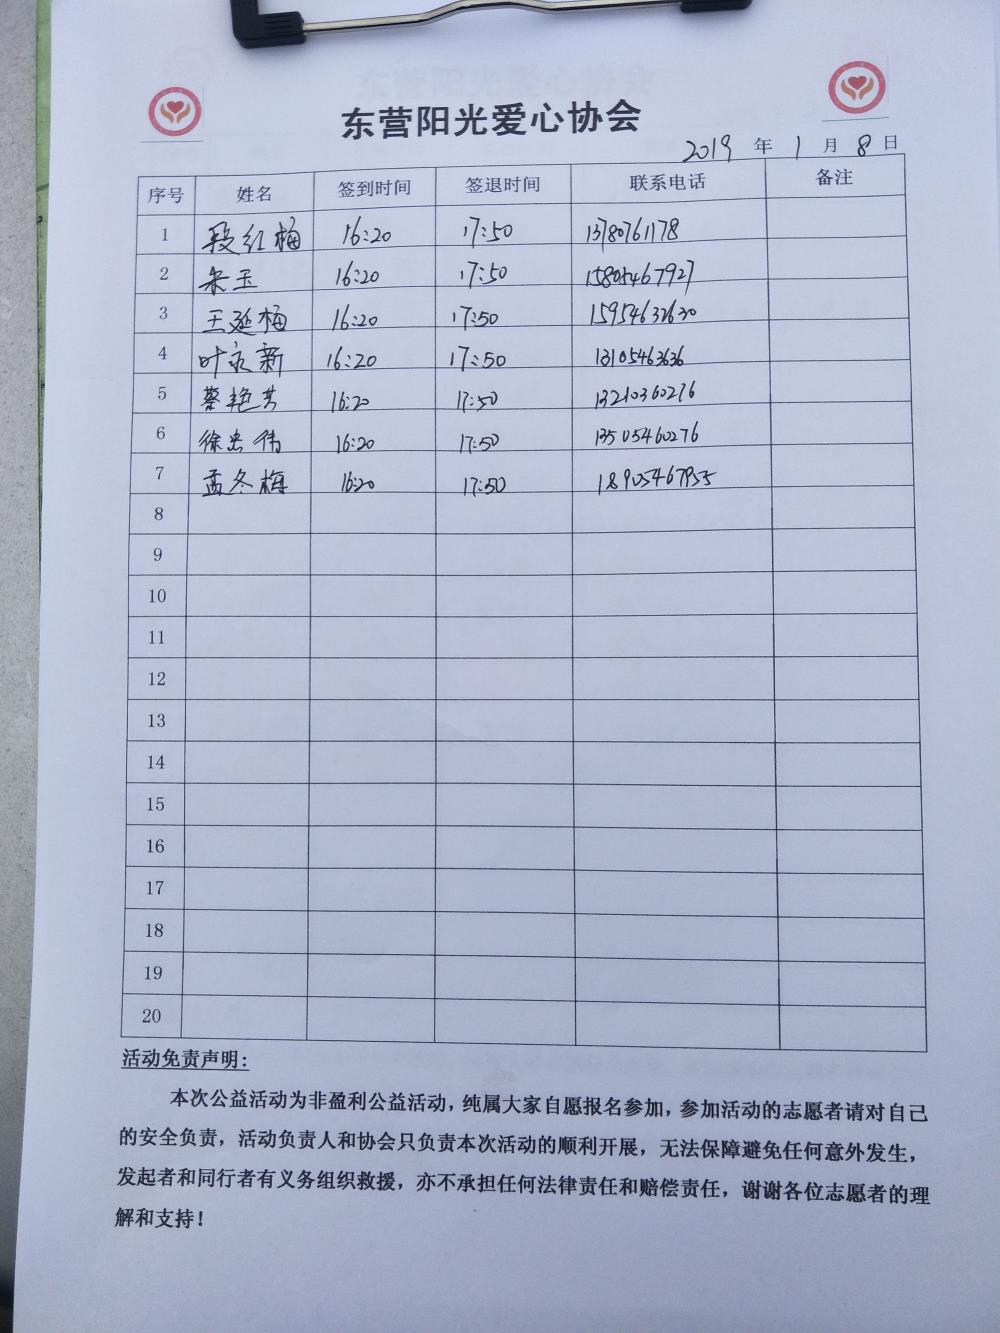 东营阳光爱心协会
2019 年 1 月 8 日
序号 姓名 签到时间 签退时间 联系电话 备注
1 段红梅 16:20 17:50 13780761178
2 朱玉 16:20 17:50 15805467927
3 王延梅 16:20 17:50 15954632630
4 叶永新 16:20 17:50 13105463636
5 蔡艳芳 16:20 17:50 13210360276
6 徐忠伟 16:20 17:50 13505460276
7 孟冬梅 16:20 17:50 18905467955
8
9
10
11
12
13
14
15
16
17
18
19
20
活动免责声明：
本次公益活动为非盈利公益活动，纯属大家自愿报名参加，参加活动的志愿者请对自己
的安全负责，活动负责人和协会只负责本次活动的顺利开展，无法保障避免任何意外发生，
发起者和同行者有义务组织救援，亦不承担任何法律责任和赔偿责任，谢谢各位志愿者的理
解和支持！